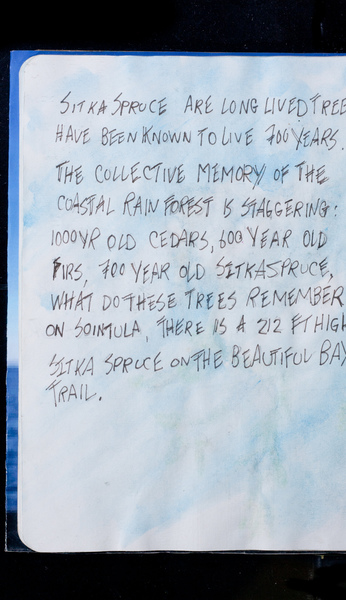 SITKA SPRUCE ARE LONG LIVED TREE
HAVE BEEN KNOWN TO LIVE 700 YEARS.
THE COLLECTIVE MEMORY OF THE
COASTAL RAIN FOREST IS STAGGERING:
1000YR OLD CEDARS, 600 YEAR OLD
FIRS, 700 YEAR OLD SITKASPRUCE,
WHAT DO THESE TREES REMEMBER
ON SOINTULA, THERE IS A 212 FT HIGH
SITKA SPRUCE ON THE BEAUTIFUL BAY
TRAIL.